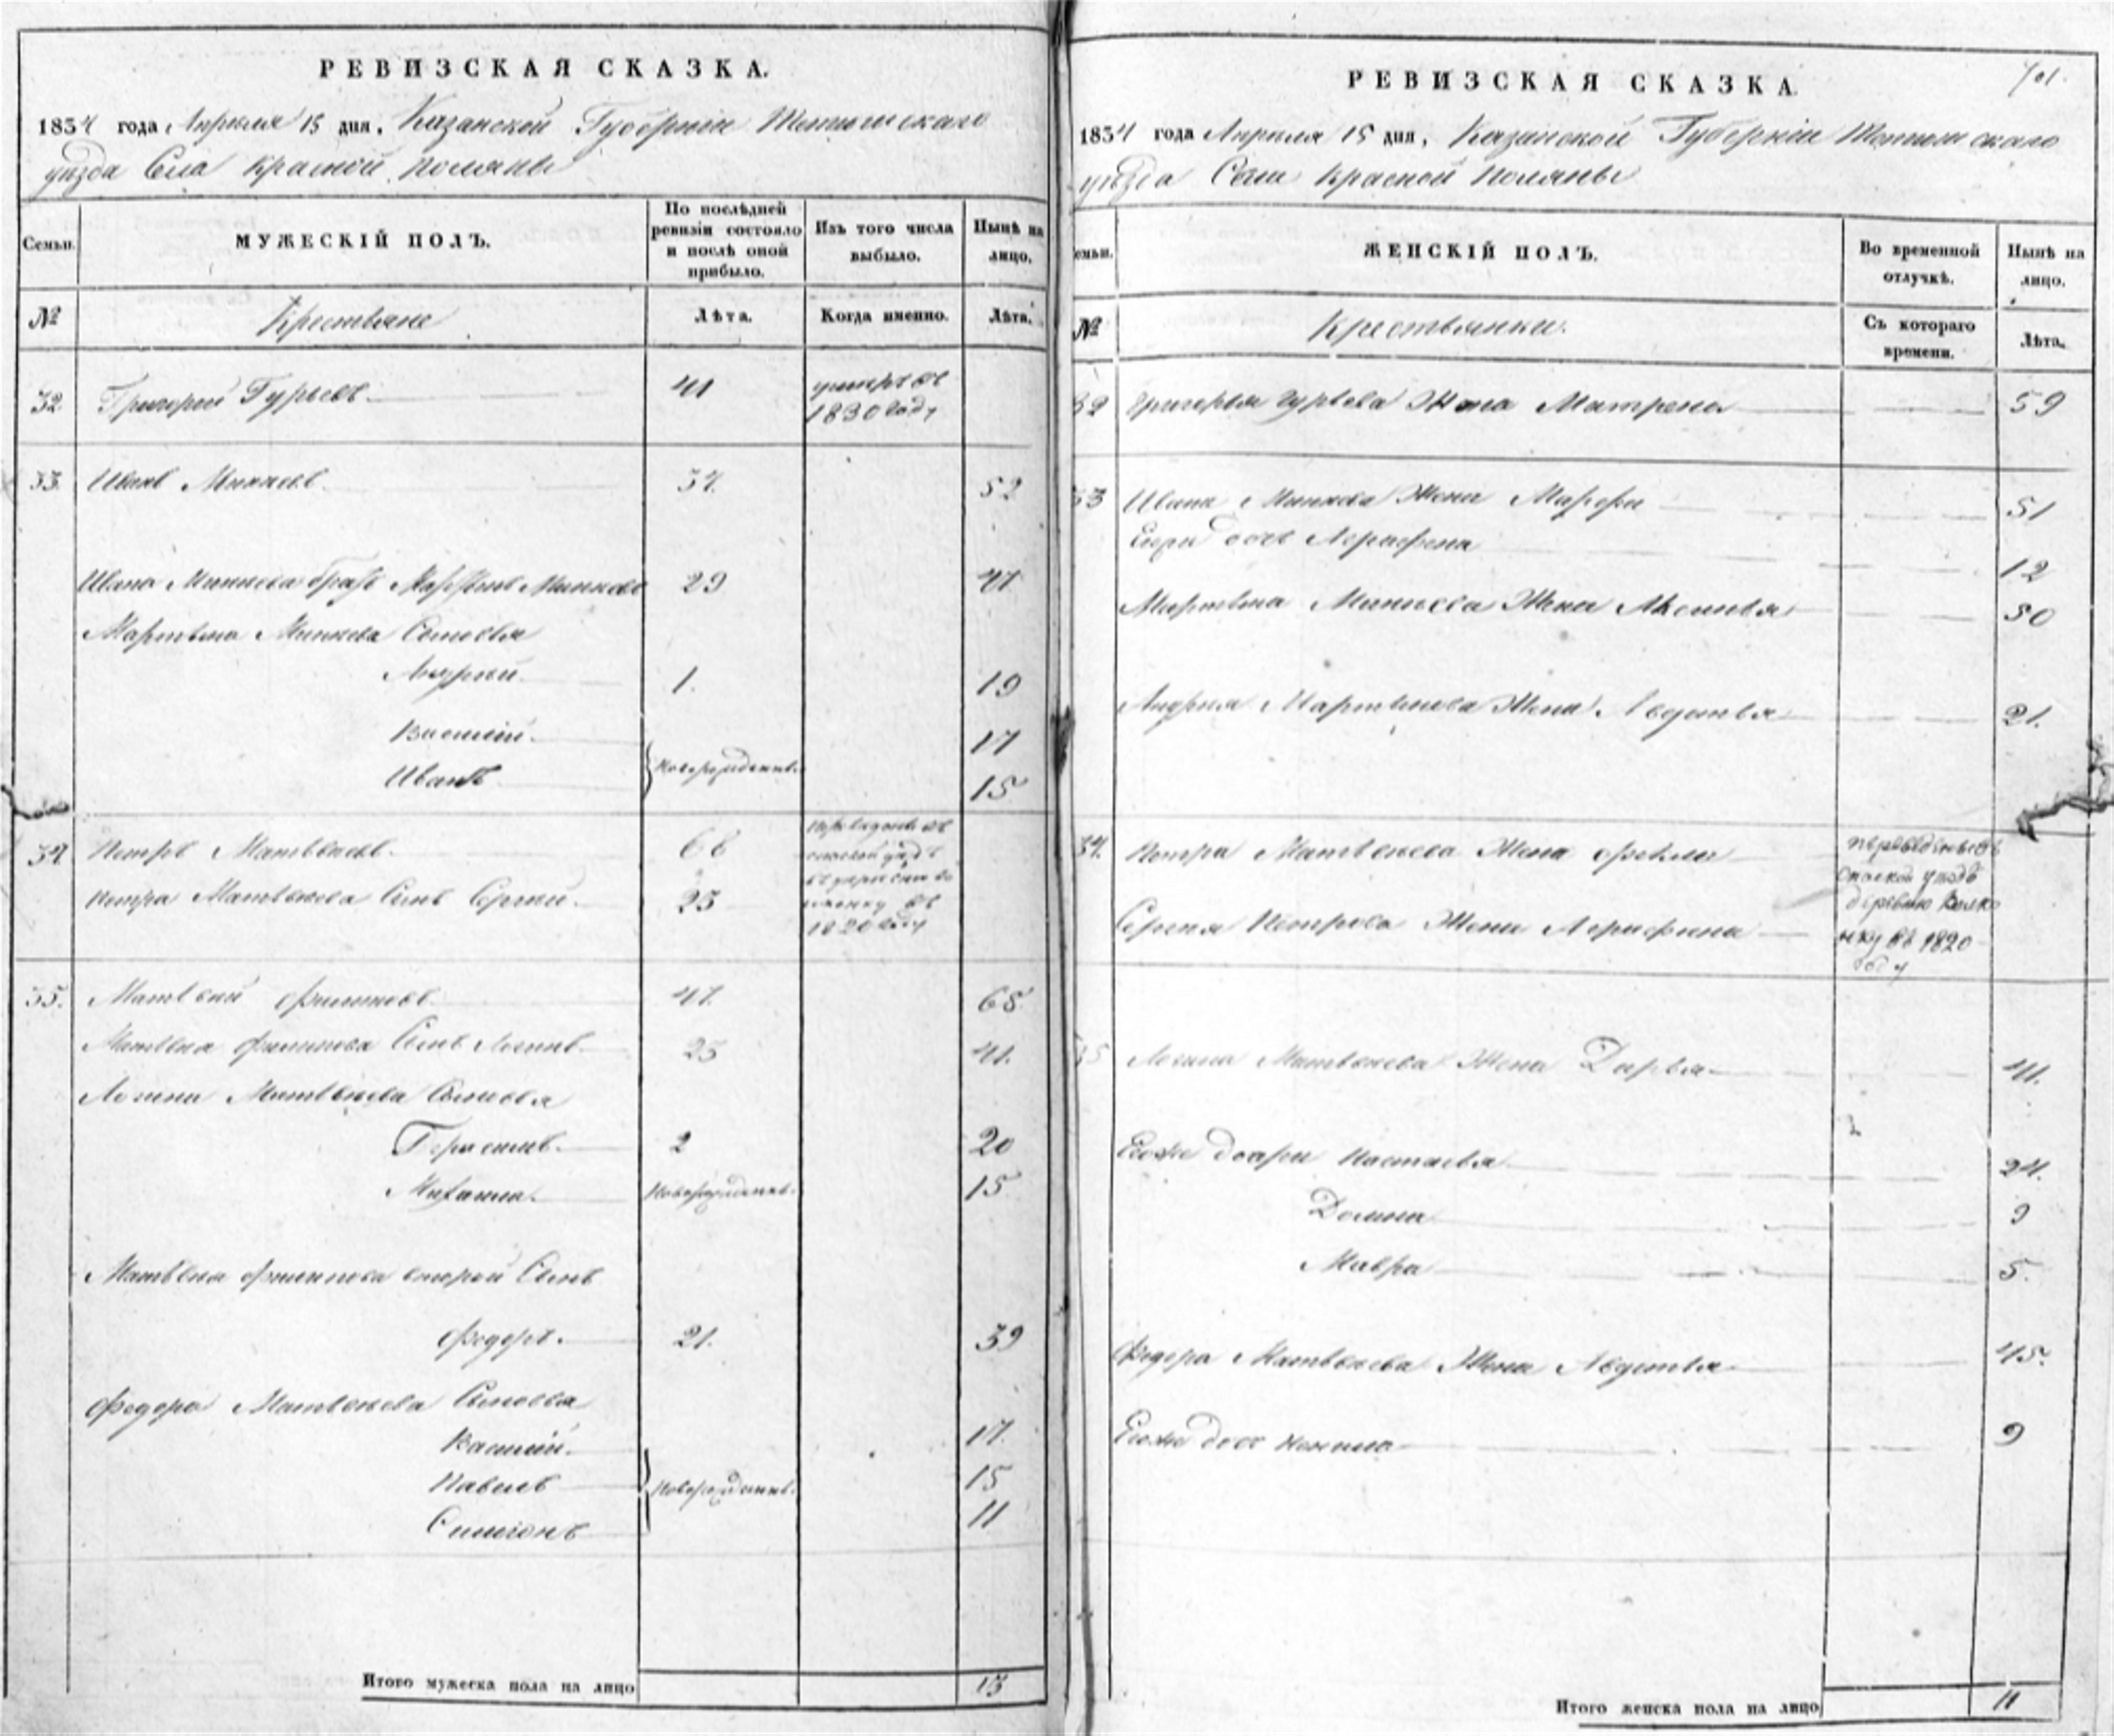 РЕВИЗСКАЯ СКАЗКА.
1834 года Апреля 15 дня, Казанской Губерніи Тетюшскаго
уѣзда Села Красной Поляны
Семьи.
МУЖЕСКІЙ ПОЛЪ.
По послѣдней
ревизіи состояло
и послѣ оной
прибыло.
Изъ того числа
выбыло.
Нынѣ на
лицо.
№
Крестьяне
Лѣта.
Когда именно.
Лѣта.
32 Григорий Гурьевъ. 41 умеръ въ
1830 году
33 Иванъ Минѣевъ. 34. 52
Ивана Минѣева братъ Мартынъ Минѣевъ 29 47
Мартына Минѣева Сыновья
Андрей 1. 19
Василій. 17
Новорожденные
Иванъ 15
34. Петръ Матвѣевъ. 66
Петра Матвѣева Сынъ Сергей. 25
35. Матвей Филиповъ 47. 65
Матвея Филипова Сынъ Логинъ 23 41.
Логина Матвѣева Сыновья
Герасимъ 2 20
Михаила. Новорожденъ. 15
Матвея Филипова второй Сынъ
Федоръ. 21. 39
Федора Матвѣева Сыновья
Василій. 17.
Павелъ Новорожденны. 15
Симіонъ 11
Итого мужеска пола на лицо 13
701.
РЕВИЗСКАЯ СКАЗКА.
1834 года Апреля 15 дня, Казанской Губерніи Тетюшскаго
уѣзда Села Красной Поляны
ЖЕНСКІЙ ПОЛЪ.
Во временной
отлучкѣ.
Нынѣ на
лицо.
№
Крестьянки.
Съ котораго
времени.
Лѣта.
32 Григорья Гурьева Жена Матрена 59
33 Ивана Минѣева Жена Марфа 51
Аграфена 12
Мартына Минѣева Жена Аксинья 50
Андрея Мартынова Жена Авдотья 21.
34. Петра Матвѣева Жена Фекла
переведены въ
уѣздъ
деревню
въ 1820
году
Сергея Петрова Жена Аграфина
35 Логина Матвѣева Жена Дарья 41.
Егоже дочери Настасья 24.
Домна 9
Мавра 5.
Федора Матвѣева Жена Авдотья 45.
Егоже дочь Ненила 9
Итого женска пола на лицо 11